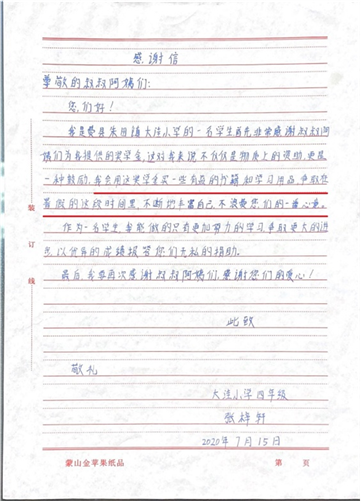 感谢信
尊敬的叔叔阿姨们:
您们好!
我是费县朱田镇大洼小学的一名学生首先非常感谢叔叔阿
姨们为我提供的奖学金,这对我来说不仅仅是物质上的资助,更是
一种鼓励,我会用这奖学金买一些有益的书籍和学习用品,争取在
暑假的这段时间里不断地丰富自己,不浪费您们的一番心意。
作为一名学生,我能做的只有更加努力的学习,争取更大的进
步,以优异的成绩报答您们无私的捐助。
最后,我要再次感谢叔叔阿姨们,感谢您们的爱心!
此致
敬礼
大洼小学四年级
张梓轩
2020年7月15日
装
订
线
蒙山金苹果纸品
第 页